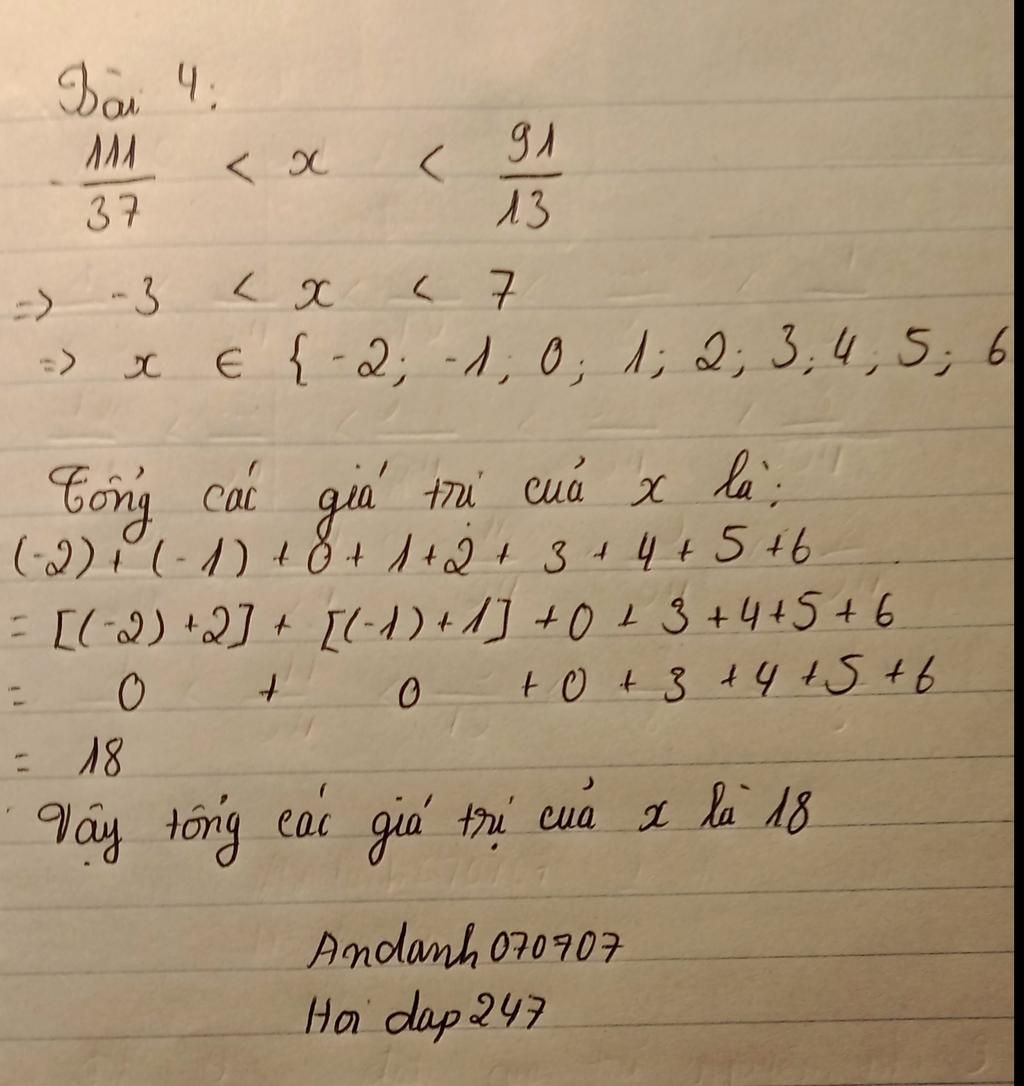 Bài 4:
-111/37 < x < 91/13
=> -3 < x < 7
=> x ∈ {-2; -1; 0; 1; 2; 3; 4; 5; 6
Tổng các giá trị của x là:
(-2) + (-1) + 0 + 1 + 2 + 3 + 4 + 5 + 6
= [(-2) + 2] + [(-1) + 1] + 0 + 3 + 4 + 5 + 6
= 0 + 0 + 0 + 3 + 4 + 5 + 6
= 18
Vậy tổng các giá trị của x là 18
Andanh070707
Hoi dap247